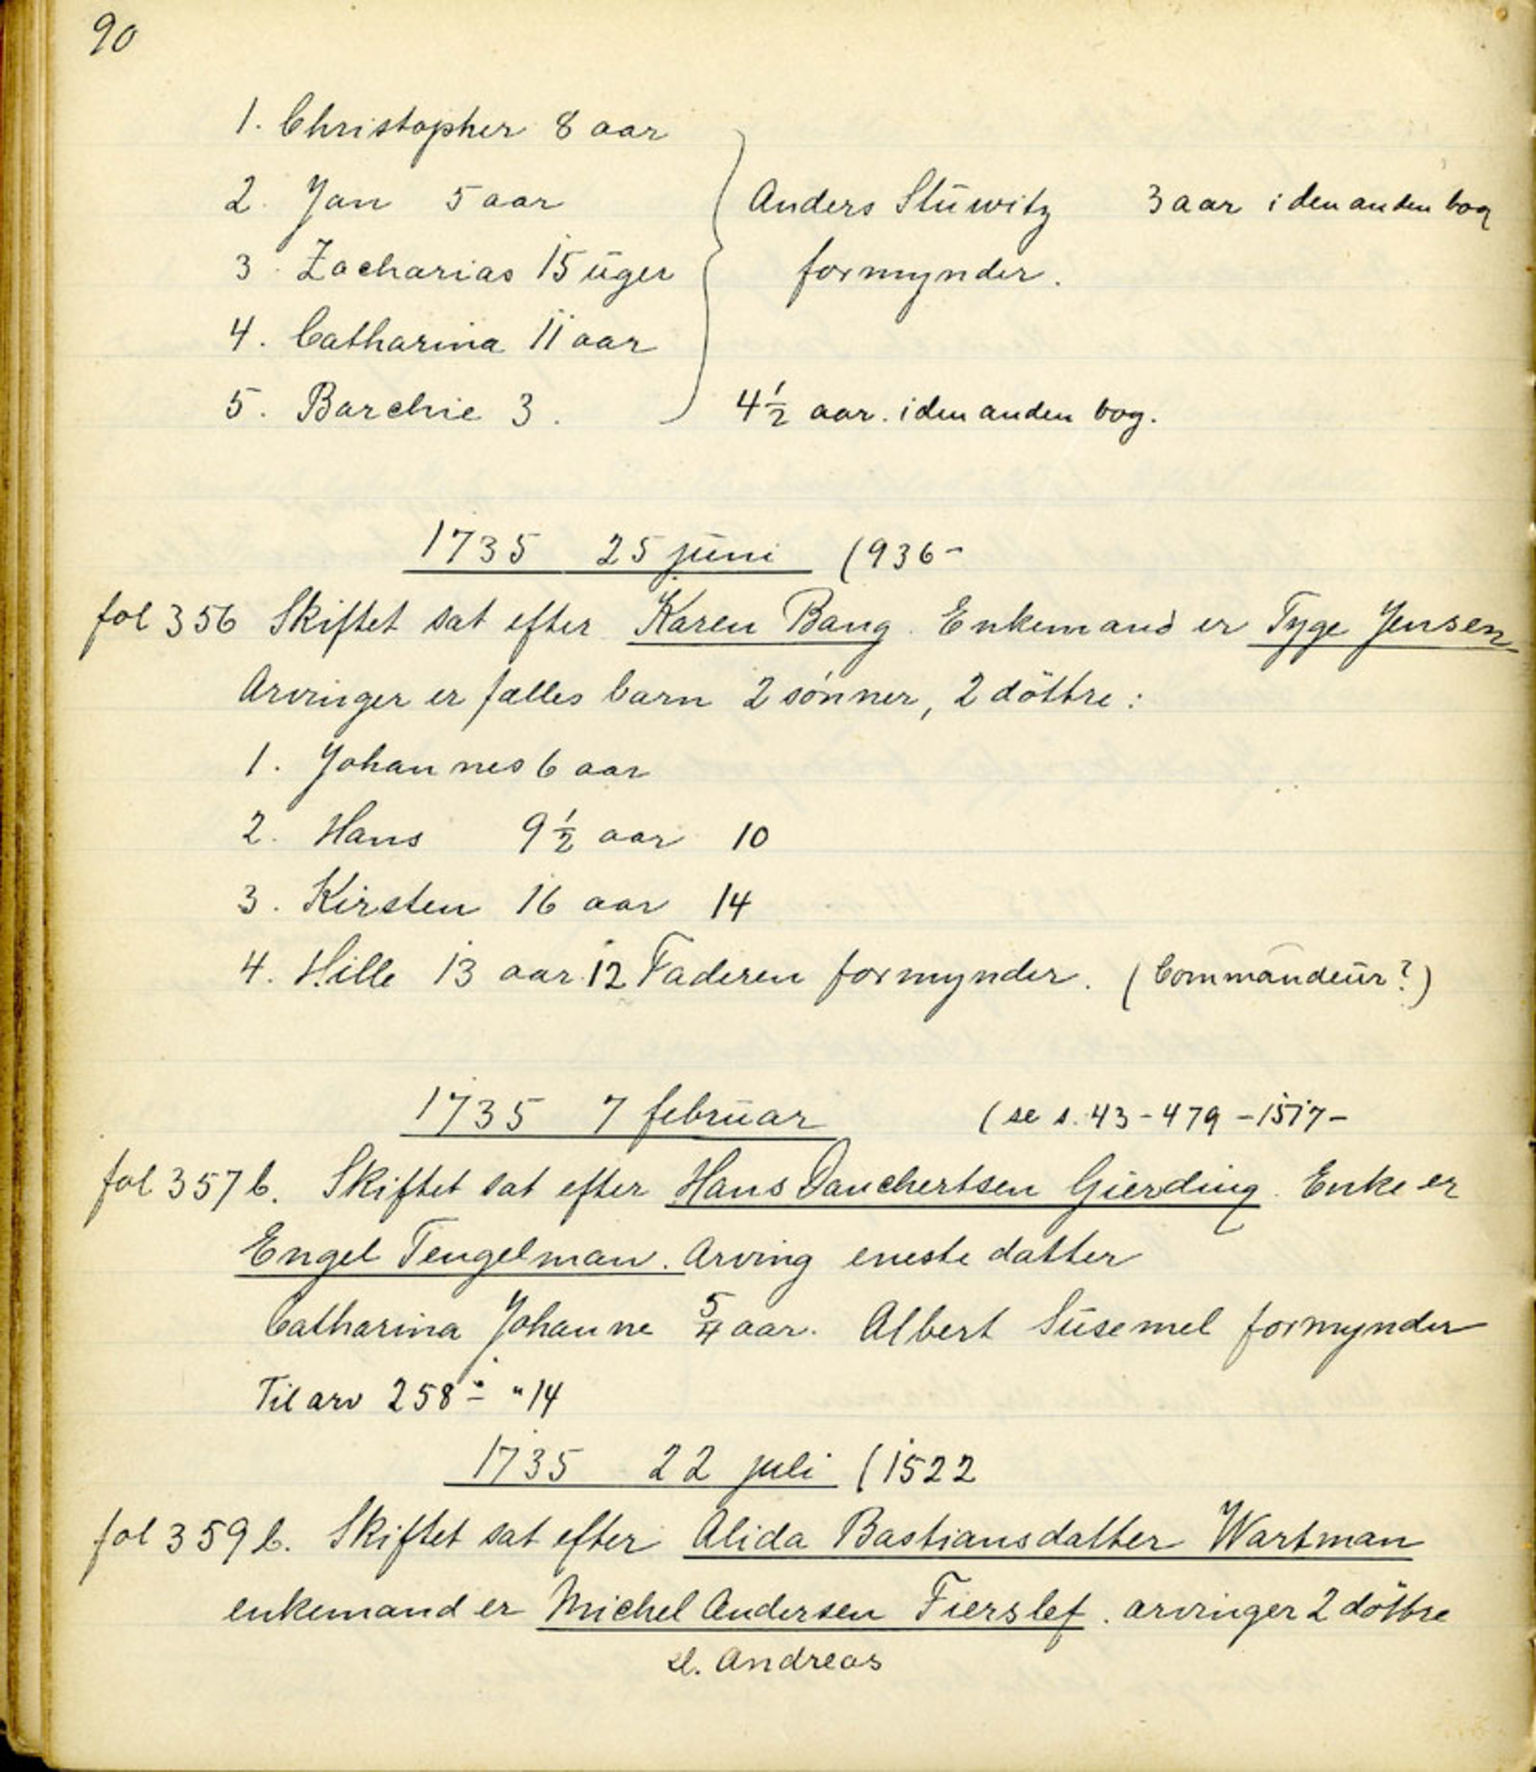 90
1. Christopher 8 aar
2. Jan 5 aar Anders Stüwitz 3 aar i den anden bog
3. Zacharias 15 üger formynder.
4. Catharina 11 aar
5. Barchie 3. 4 1/2 aar. i den anden bog.
1735 25 jüni (936-
fol 356 Skiftet sat efter Karen Bang. Enkemand er Tyge Jensen
Arvinger er fælles barn 2 sönner, 2 döttre:
1. Johannes 6 aar
2. Hans 9 1/2 aar 10
3. Kirsten 16 aar 14
4. Hille 13 aar. 12 Faderen formynder. (Commandeür?)
1735 7 febrüar (se s. 43-479-1517-
fol 357 b. Skiftet sat efter Hans Danchertsen Gierding. Enke er
Engel Tengelman. Arving eneste datter
Catharina Johanne 5/4 aar. Albert Süsemel formynder
Til arv 258 - " 14
1735 22 juli (1522
fol 359 b. Skiftet sat efter Alida Bastiansdatter Wartman
enkemand er Michel Andersen Fierslef. arvinger 2 döttre
el. Andreas